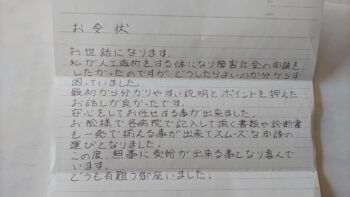 お令状
お世話になります。
私が人工透析をする体になり障害年金の申請を
したかったのですが、どうしたらよいのか分からず
困っていました。
最初から分かりやすい説明とポイントを押えた
お話しが良かったです。
安心をしてお任せする事が出来ました。
お陰様で各病院で記入して頂く書類や診断書
も一発で揃える事が出来てスムーズな申請の
運びとなりました。
この度、無事に受給が出来る事となり喜んで
います。
どうも有難う御座いました。